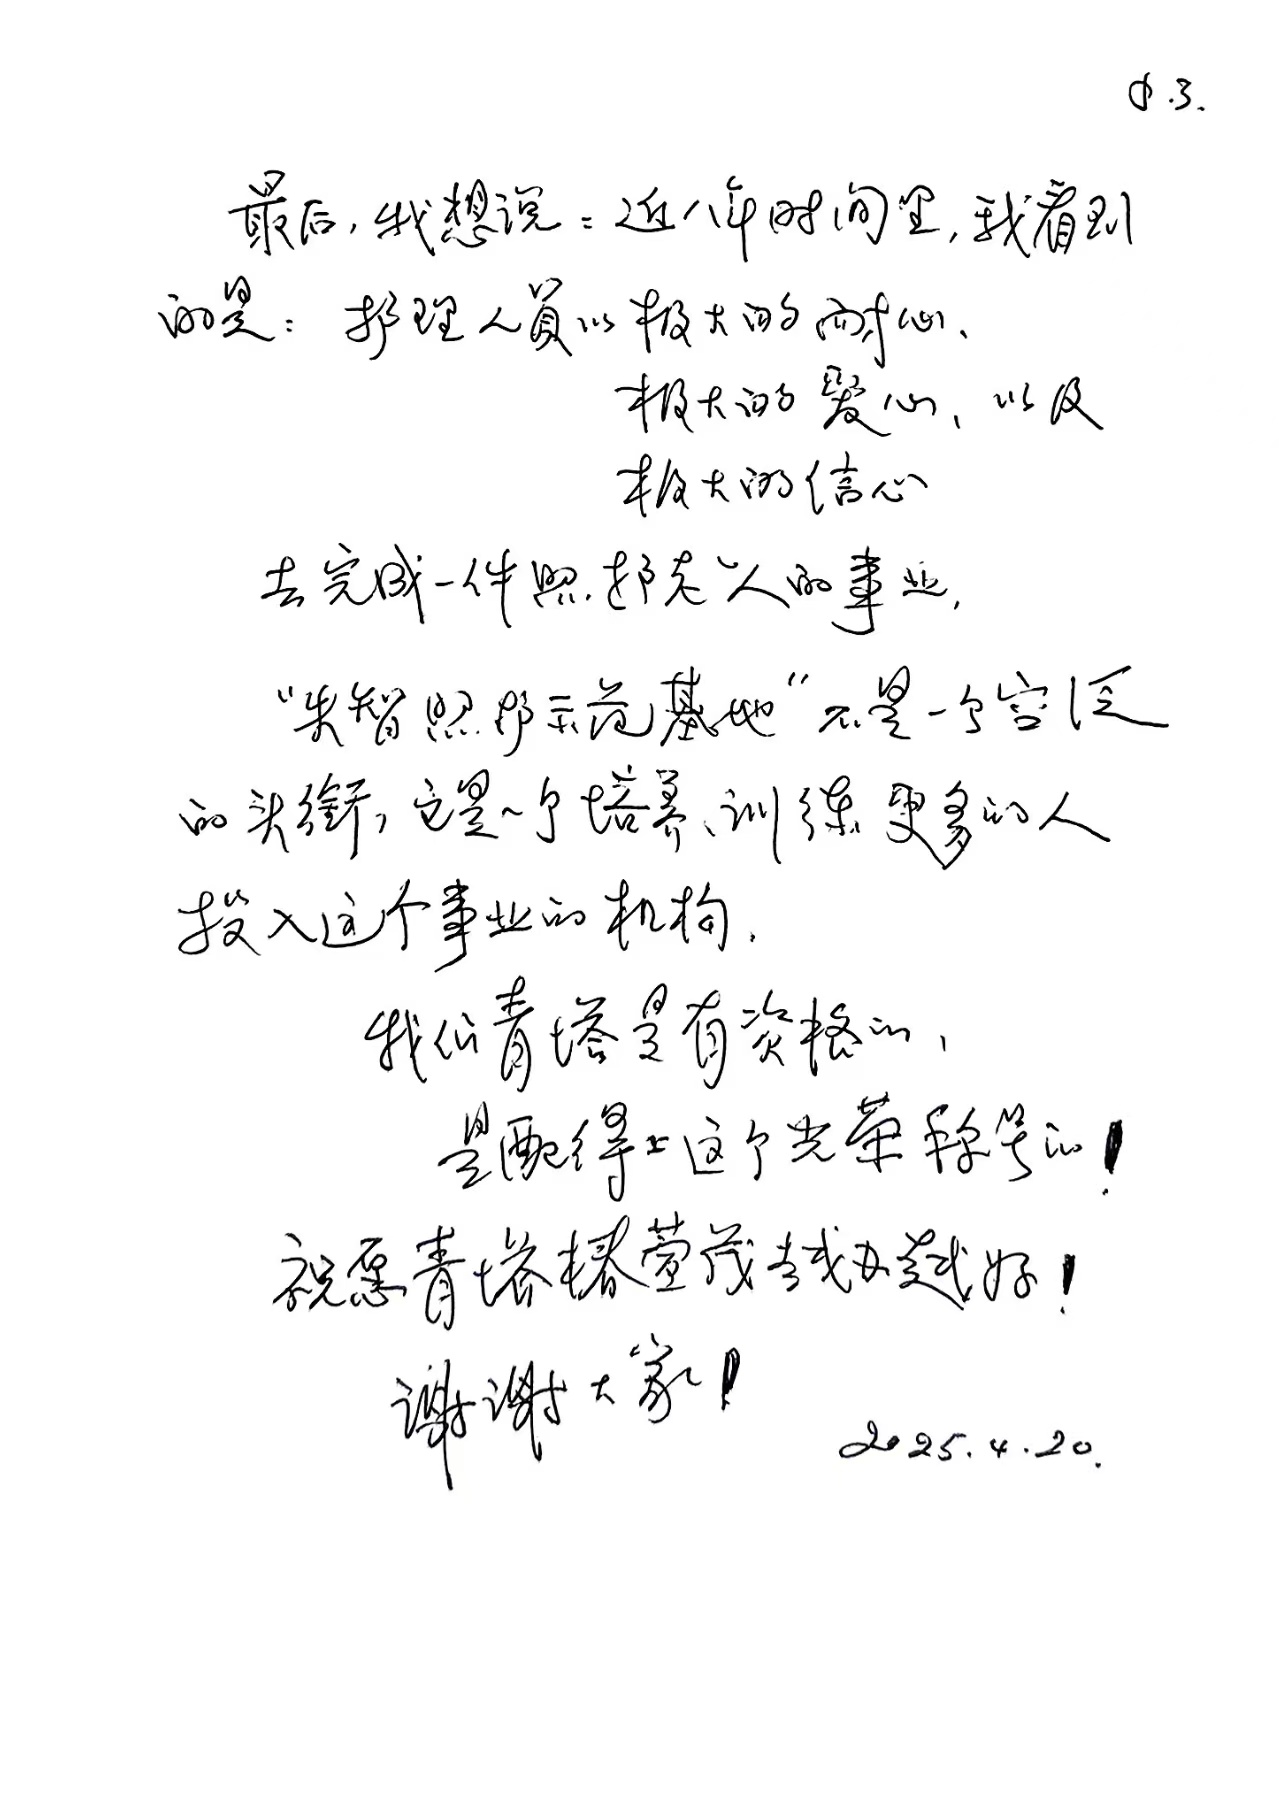 P.3.
最后，我想说：近八年时间里，我看到
的是：护理人员以极大的耐心、
极大的爱心、以及
极大的信心
去完成一件照护老人的事业.
“失智照护示范基地”不是一个空泛
的头衔，它是一个培养、训练更多的人
投入这个事业的机构.
我们青塔是有资格的，
是配得上这个光荣称号的！
祝愿青塔椿萱茂越办越好！
谢谢大家！
2025.4.20.